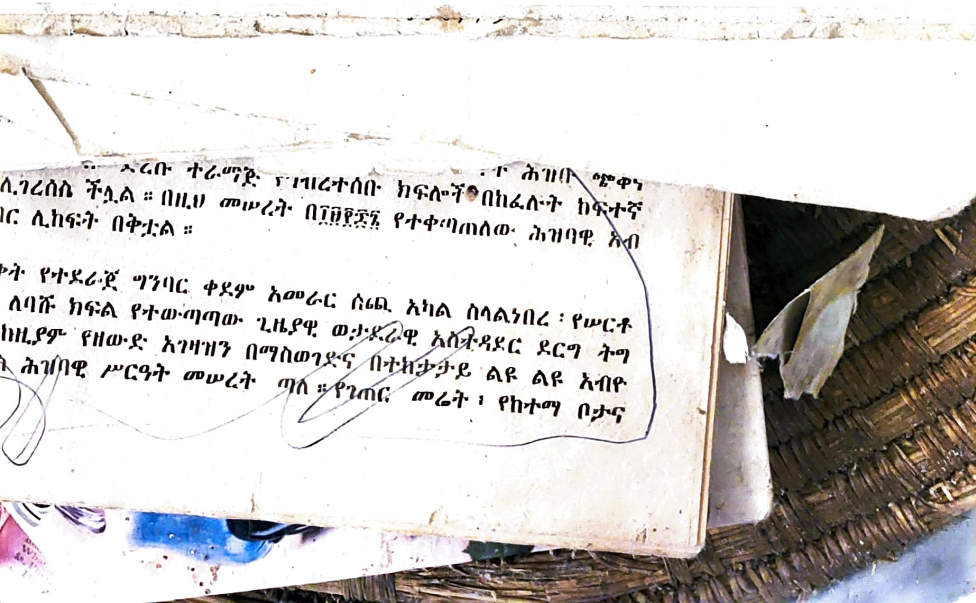 ተራማጅ የኅብረተሰቡ ክፍሎች ሕዝባ ጭቆና
ሊገረሰስ ችሏል ። በዚህ መሠረት በ፲፱፻፷፮ በከፈሉት ከፍተኛ
ሊከፍት በቅቷል ። የተቀጣጠለው ሕዝባዊ አብ
የተደራጀ ግንባር ቀደም አመራር ሰጪ አካል ስላልነበረ ፡ የሠርቶ
ለባሹ ክፍል የተውጣጣው ጊዜያዊ ወታደራዊ አስተዳደር ደርግ ትግ
ከዚያም የዘውድ አገዛዝን በማስወገድና በተከታታይ ልዩ ልዩ አብዮ
ሕዝባዊ ሥርዓት መሠረት ጣለ ። የገጠር መሬት ፣ የከተማ ቦታና